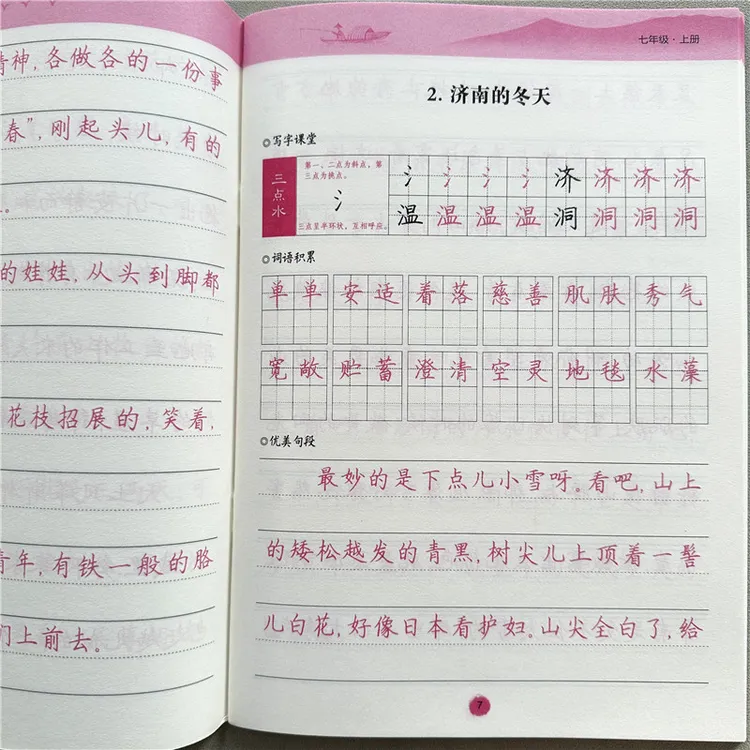 精神,各做各的一份事
春”,刚起头儿,有的
。
的娃娃,从头到脚都
花枝招展的,笑着,
青年,有铁一般的胳
们上前去。
七年级·上册
2. 济南的冬天
写字课堂
三点水
第一、二点为斜点,第
三点为挑点。
氵
三点呈半环状,互相呼应。
氵 氵 氵 氵 济 济 济 济
温 温 温 温 洞 洞 洞 洞
词语积累
单单 安适 着落 慈善 肌肤 秀气
宽敞 贮蓄 澄清 空灵 地毯 水藻
优美句段
最妙的是下点儿小雪呀。看吧,山上
的矮松越发的青黑,树尖儿上顶着一髻
儿白花,好像日本看护妇。山尖全白了,给
7